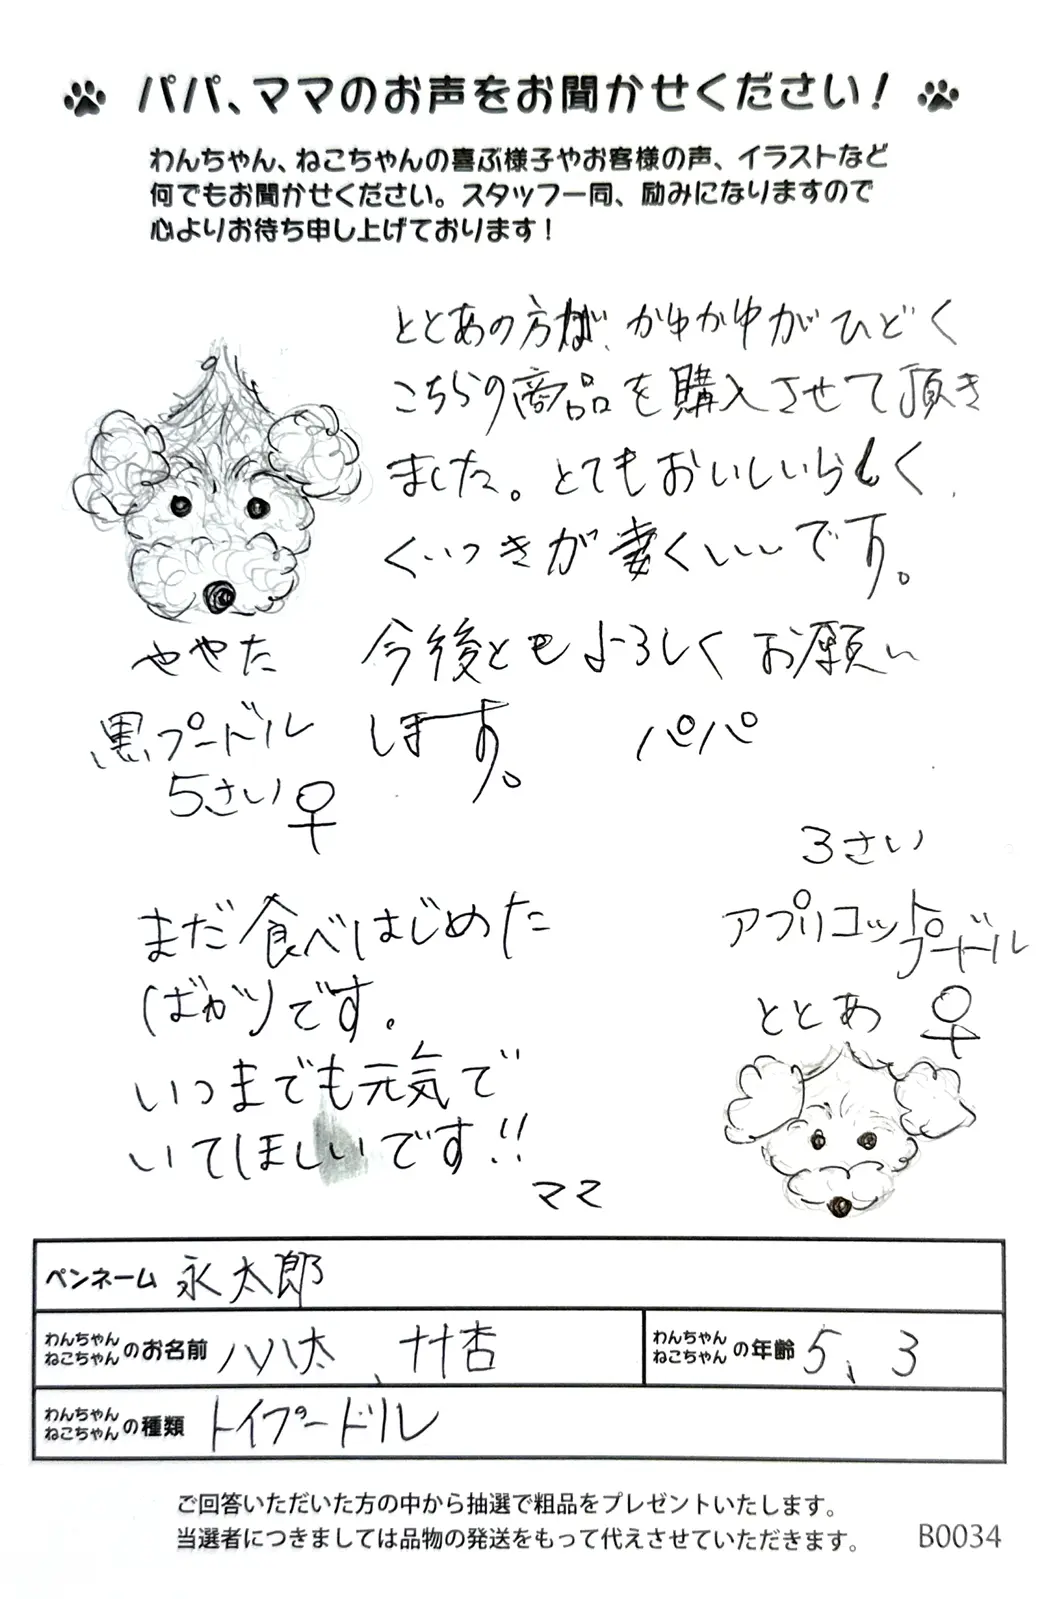 パパ、ママのお声をお聞かせください！
わんちゃん、ねこちゃんの喜ぶ様子やお客様の声、イラストなど
何でもお聞かせください。スタッフ一同、励みになりますので
心よりお待ち申し上げております！
ととあの方が、かゆかゆがひどく
こちらの商品を購入させて頂き
ました。とてもおいしいらしく
くいつきが凄くいいです。
今後ともよろしくお願い
します。 パパ
ややた
黒プードル
5さい♀
3さい
アプリコットプードル
ととあ ♀
まだ食べはじめた
ばかりです。
いつまでも元気で
いてほしいです!!
ママ
ペンネーム 永太郎
わんちゃん ねこちゃん のお名前 八八太、十十杏
わんちゃん ねこちゃん の年齢 5、3
わんちゃん ねこちゃん の種類 トイプードル
ご回答いただいた方の中から抽選で粗品をプレゼントいたします。
当選者につきましては品物の発送をもって代えさせていただきます。 B0034